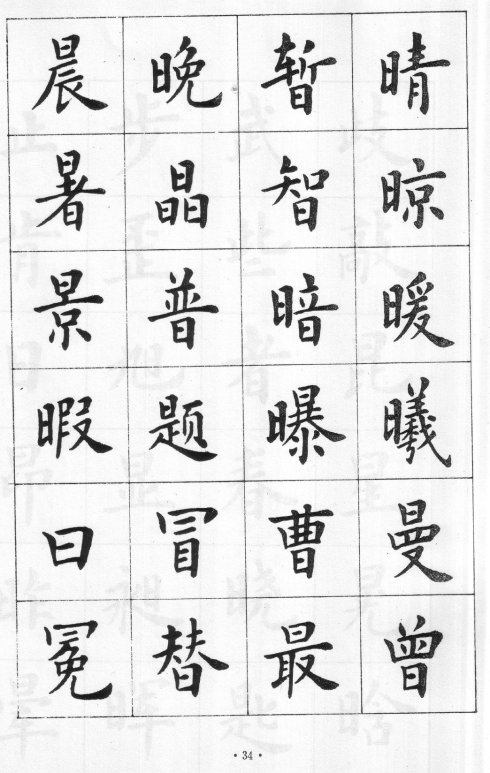 晨 晚 暂 晴
暑 晶 智 晾
景 普 暗 暖
暇 题 曝 曦
曰 冒 曹 曼
冕 替 最 曾
· 34 ·